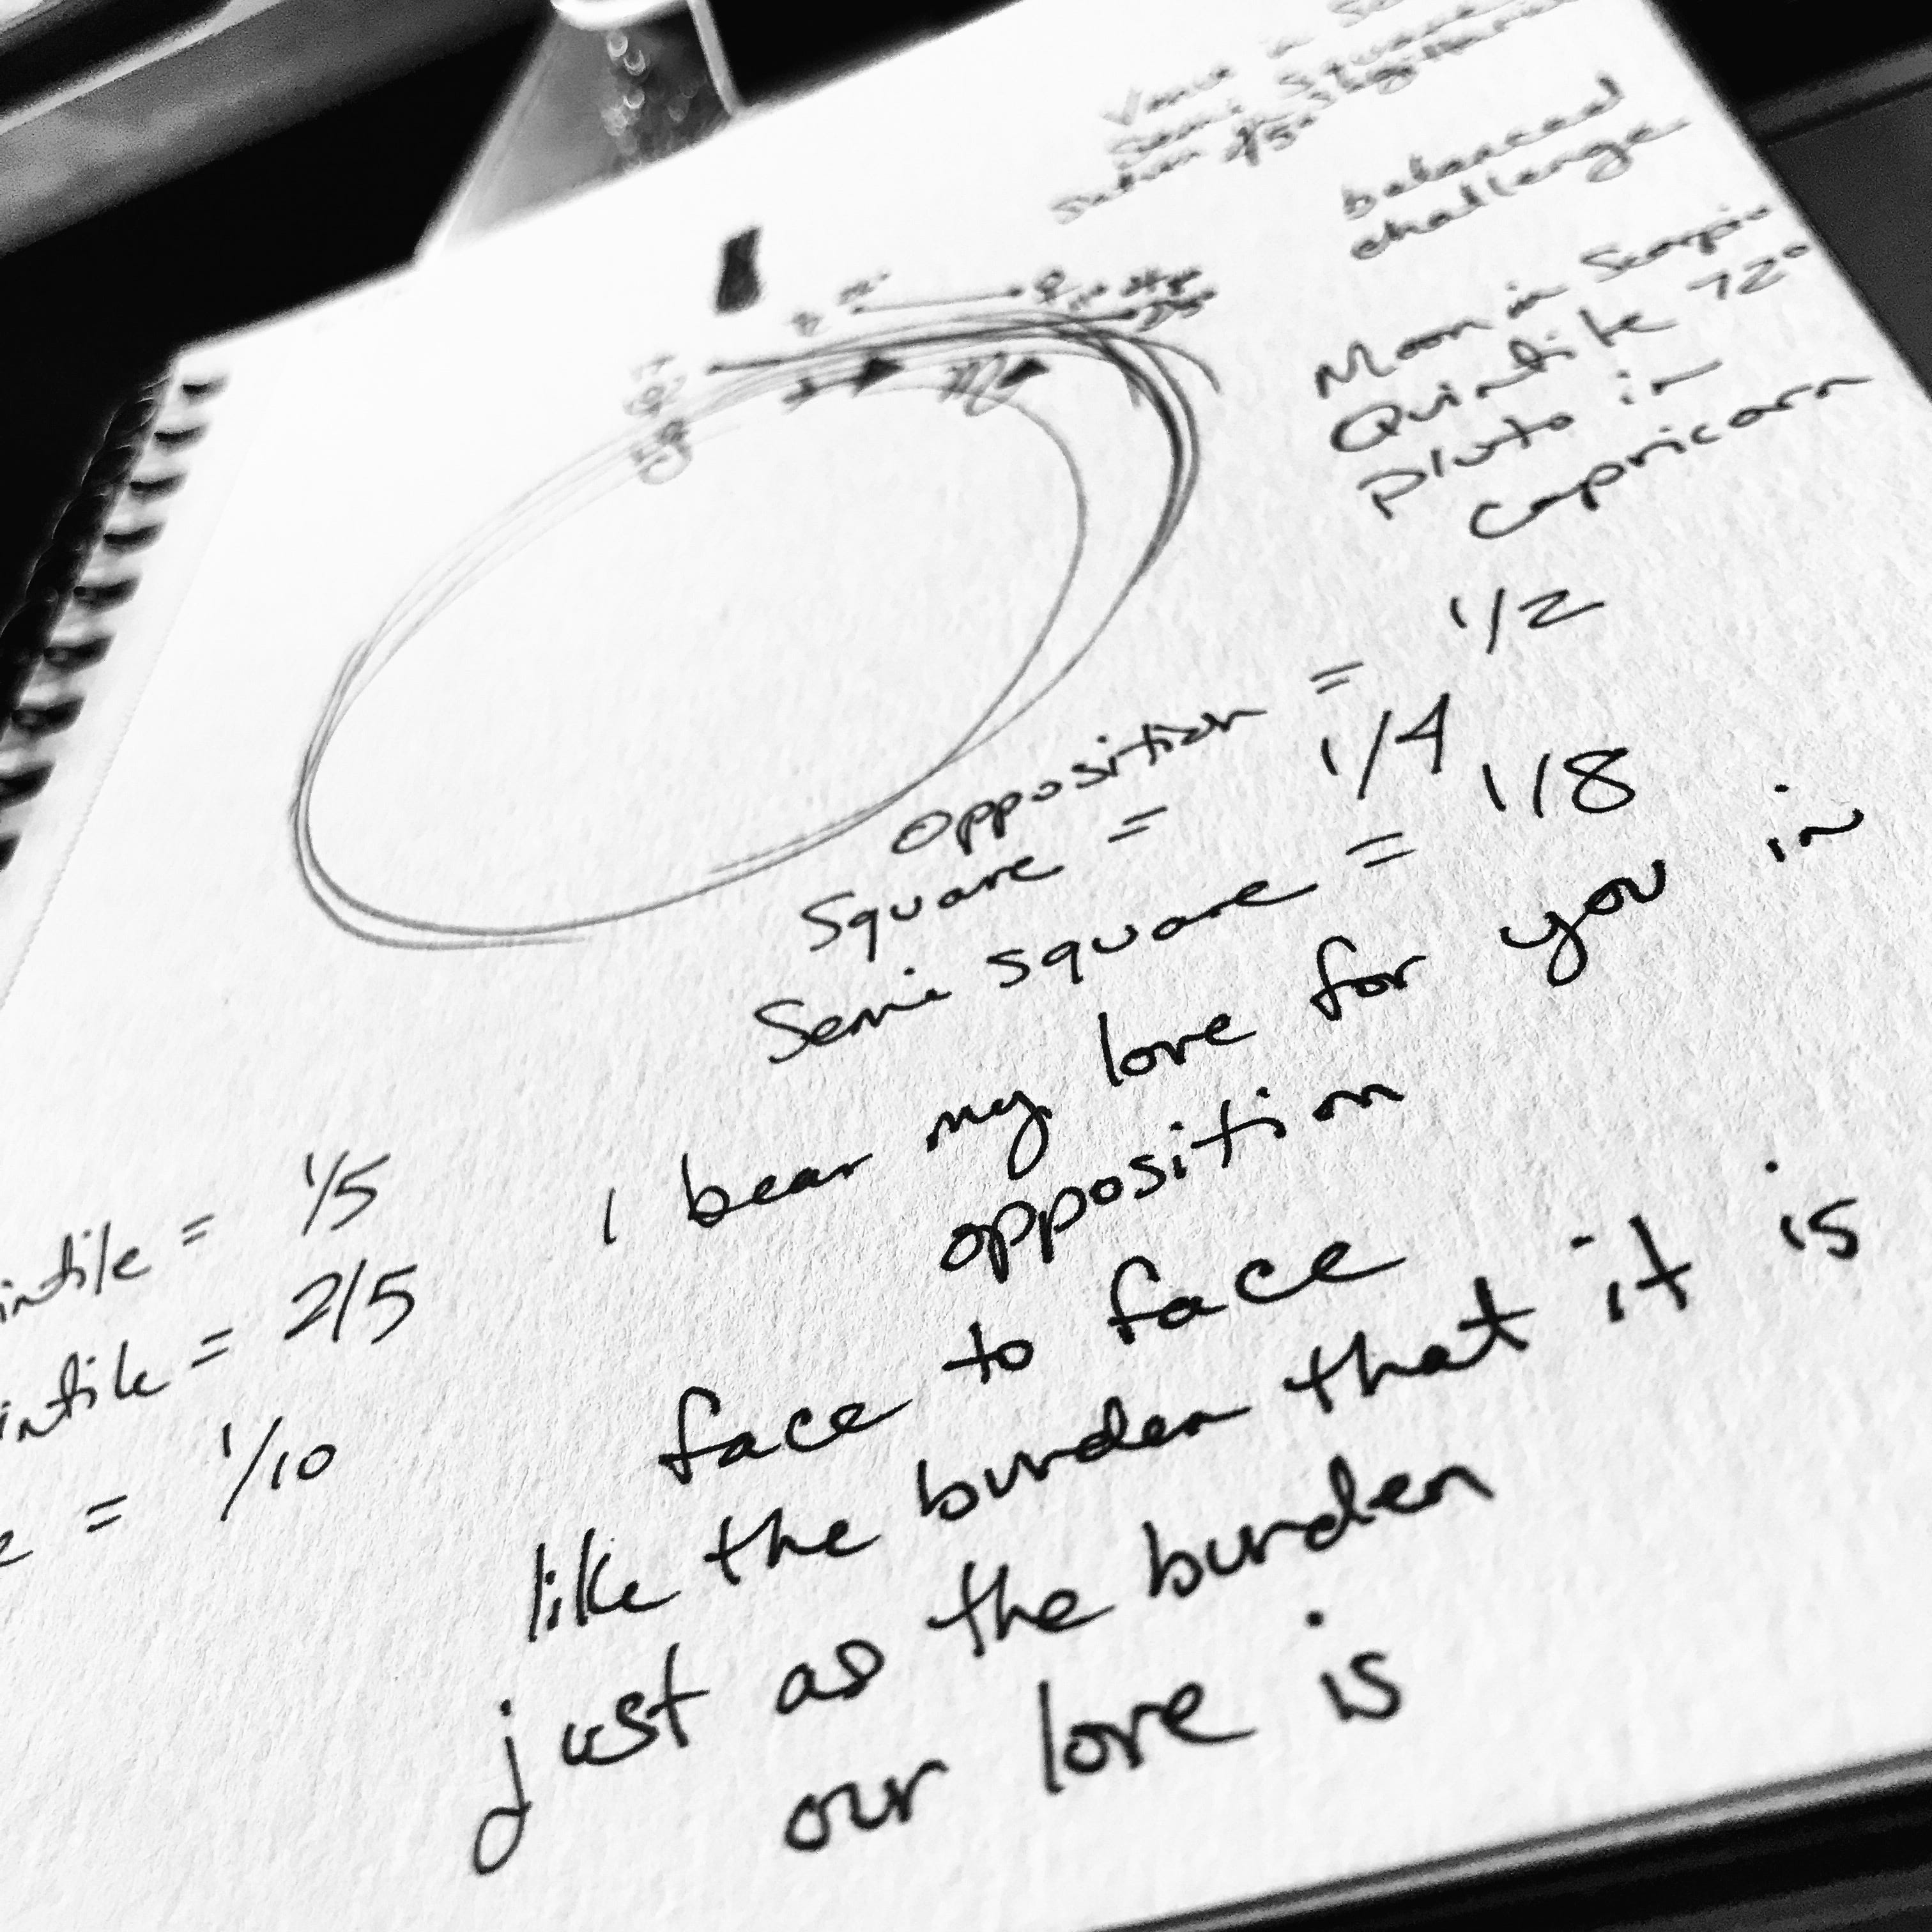 Semi Square
balanced
challenge
Moon in Scorpio
Quintile 72°
Pluto in
Capricorn
Opposition = 1/2
Square = 1/4
Semi square = 1/8
intile = 1/5
intile = 2/5
= 1/10
I bear my love for you in
opposition
face to face
like the burden that it is
just as the burden
our love is